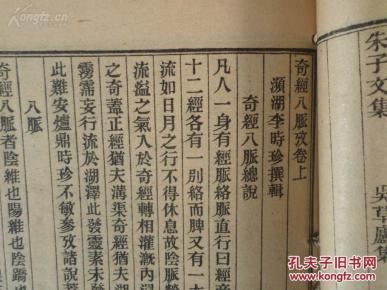 朱子文集
吳草廬集
奇經八脈攷卷上
瀕湖李時珍撰輯
奇經八脈總說
凡人一身有經脈絡脈直行曰經
十二經各有一別絡而脾又有一大
流如日月之行不得休息故陰脈營
流溢之氣入於奇經轉相灌溉內
之奇蓋正經猶夫溝渠奇經猶夫湖
霶霈妄行流於湖澤此發靈素未發
此難安爐鼎時珍不敏參攷諸說
八脈
奇經八脈者陰維也陽維也陰蹻也